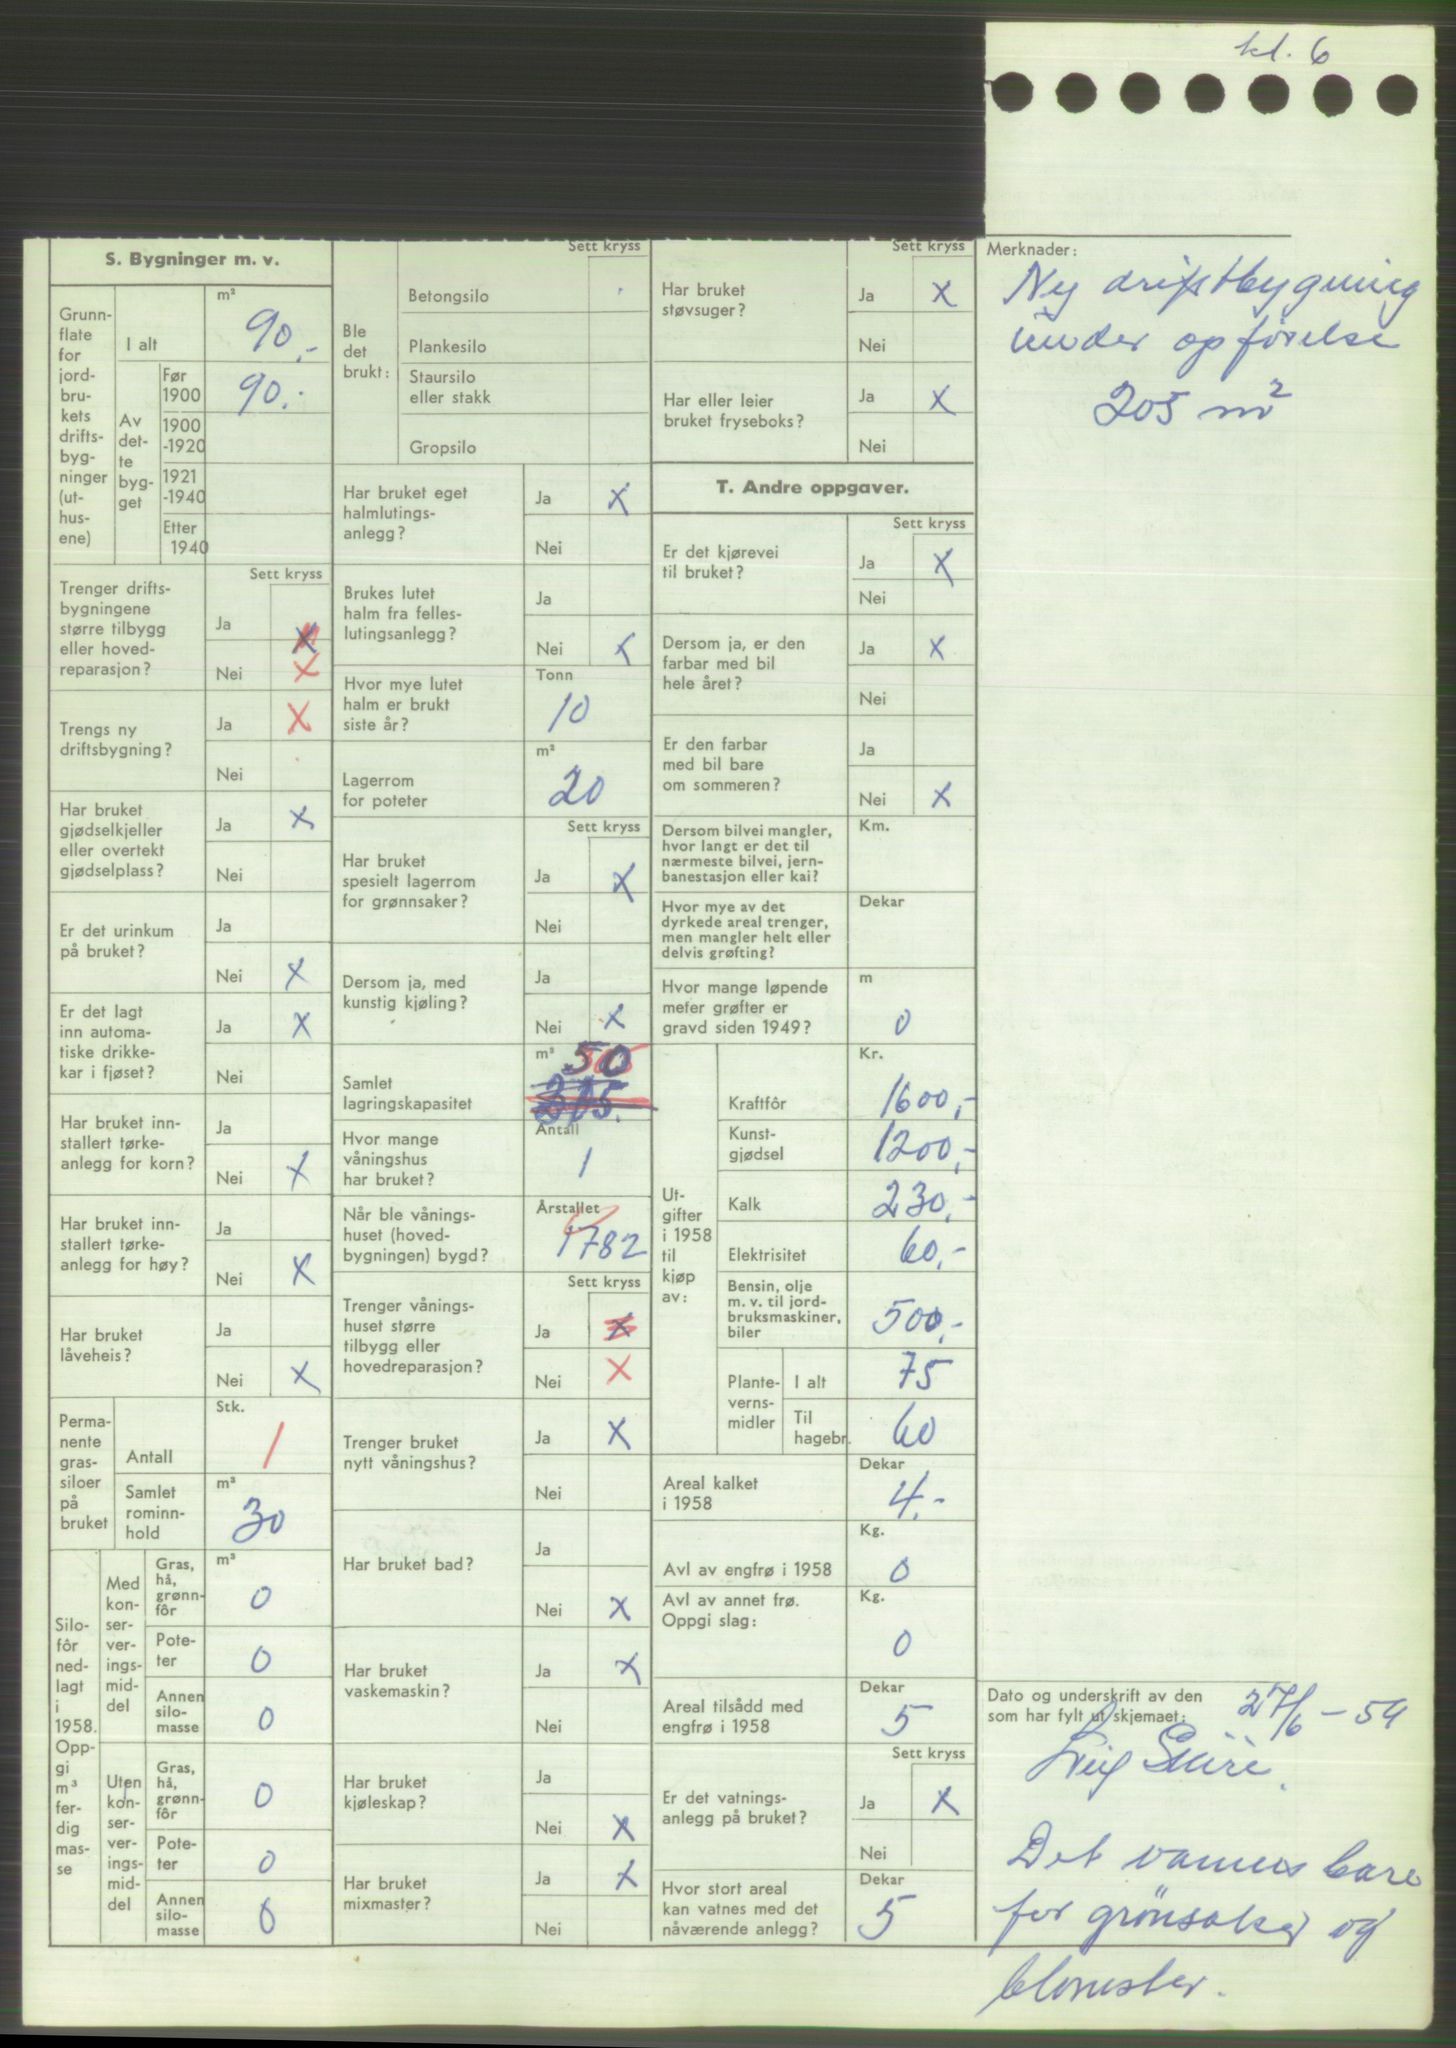 kl. 6
S. Bygninger m. v.
Grunn-
flate
for
jord-
bru-
kets
drifts-
byg-
ninger
(ut-
hus-
ene)
I alt
m²
90,-
Av
det-
te
byg-
get
Før
1900
90.-
1900
-1920
1921
-1940
Etter
1940
Sett kryss
Trenger drifts-
bygningene
større tilbygg
eller hoved-
reparasjon?
Ja X
Nei X
Trengs ny
driftsbygning?
Ja X
Nei
Har bruket
gjødselkjeller
eller overtekt
gjødselplass?
Ja X
Nei
Er det urinkum
på bruket?
Ja
Nei X
Er det lagt
inn automa-
tiske drikke-
kar i fjøset?
Ja X
Nei
Har bruket inn-
stallert tørke-
anlegg for korn?
Ja
Nei X
Har bruket inn-
stallert tørke-
anlegg for høy?
Ja
Nei X
Har bruket
låveheis?
Ja
Nei X
Perma-
nente
gras-
siloer
på
bruket
Antall
Stk.
1
Samlet
rominn-
hold
m³
30
Silo-
fôr
ned-
lagt
i
1958.
Opp-
gi
m³
fer-
dig
mas-
se
Med
kon-
ser-
ver-
ings-
mid-
del
Gras,
hå,
grønn-
fôr
m³
0
Pote-
ter
0
Annen
silo-
masse
0
Uten
kon-
ser-
ver-
ings-
mid-
del
Gras,
hå,
grønn-
fôr
0
Pote-
ter
0
Annen
silo-
masse
0
Sett kryss
Ble
det
brukt:
Betongsilo
Plankesilo
Staursilo
eller stakk
Gropsilo
Har bruket eget
halmlutings-
anlegg?
Ja X
Nei
Brukes lutet
halm fra felles-
lutingsanlegg?
Ja
Nei X
Hvor mye lutet
halm er brukt
siste år?
Tonn
10
Lagerrom
for poteter
m²
20
Sett kryss
Har bruket
spesielt lagerrom
for grønnsaker?
Ja X
Nei
Dersom ja, med
kunstig kjøling?
Ja
Nei X
Samlet
lagringskapasitet
m³ 50
Hvor mange
våningshus
har bruket?
Antall
1
Når ble vånings-
huset (hoved-
bygningen) bygd?
Årstallet
1782
Sett kryss
Trenger vånings-
huset større
tilbygg eller
hovedreparasjon?
Ja X
Nei X
Trenger bruket
nytt våningshus?
Ja X
Nei
Har bruket bad?
Ja
Nei X
Har bruket
vaskemaskin?
Ja X
Nei
Har bruket
kjøleskap?
Ja
Nei X
Har bruket
mixmaster?
Ja X
Nei
Sett kryss
Har bruket
støvsuger?
Ja X
Nei
Har eller leier
bruket fryseboks?
Ja X
Nei
T. Andre oppgaver.
Sett kryss
Er det kjørevei
til bruket?
Ja X
Nei
Dersom ja, er den
farbar med bil
hele året?
Ja X
Nei
Er den farbar
med bil bare
om sommeren?
Ja
Nei X
Dersom bilvei mangler,
hvor langt er det til
nærmeste bilvei, jern-
banestasjon eller kai?
Km.
Hvor mye av det
dyrkede areal trenger,
men mangler helt eller
delvis grøfting?
Dekar
Hvor mange løpende
meter grøfter er
gravd siden 1949?
m
0
Ut-
gifter
i 1958
til
kjøp
av:
Kr.
Kraftfôr 1600,-
Kunst-
gjødsel 1200,-
Kalk 230,-
Elektrisitet 60,-
Bensin, olje
m. v. til jord-
bruksmaskiner,
biler
500,-
Plante-
verns-
midler
I alt 75
Til
hagebr. 60
Areal kalket
i 1958
Dekar
4.-
Avl av engfrø i 1958
Kg.
0
Avl av annet frø.
Oppgi slag:
Kg.
0
Areal tilsådd med
engfrø i 1958
Dekar
5
Sett kryss
Er det vatnings-
anlegg på bruket?
Ja X
Nei
Hvor stort areal
kan vatnes med det
nåværende anlegg?
Dekar
5
Merknader:
Ny driftbygning
under opförelse
205 m²
Dato og underskrift av den
som har fylt ut skjemaet:
27/6 - 59
Det vannes bare
for grönsaker og
blomster.